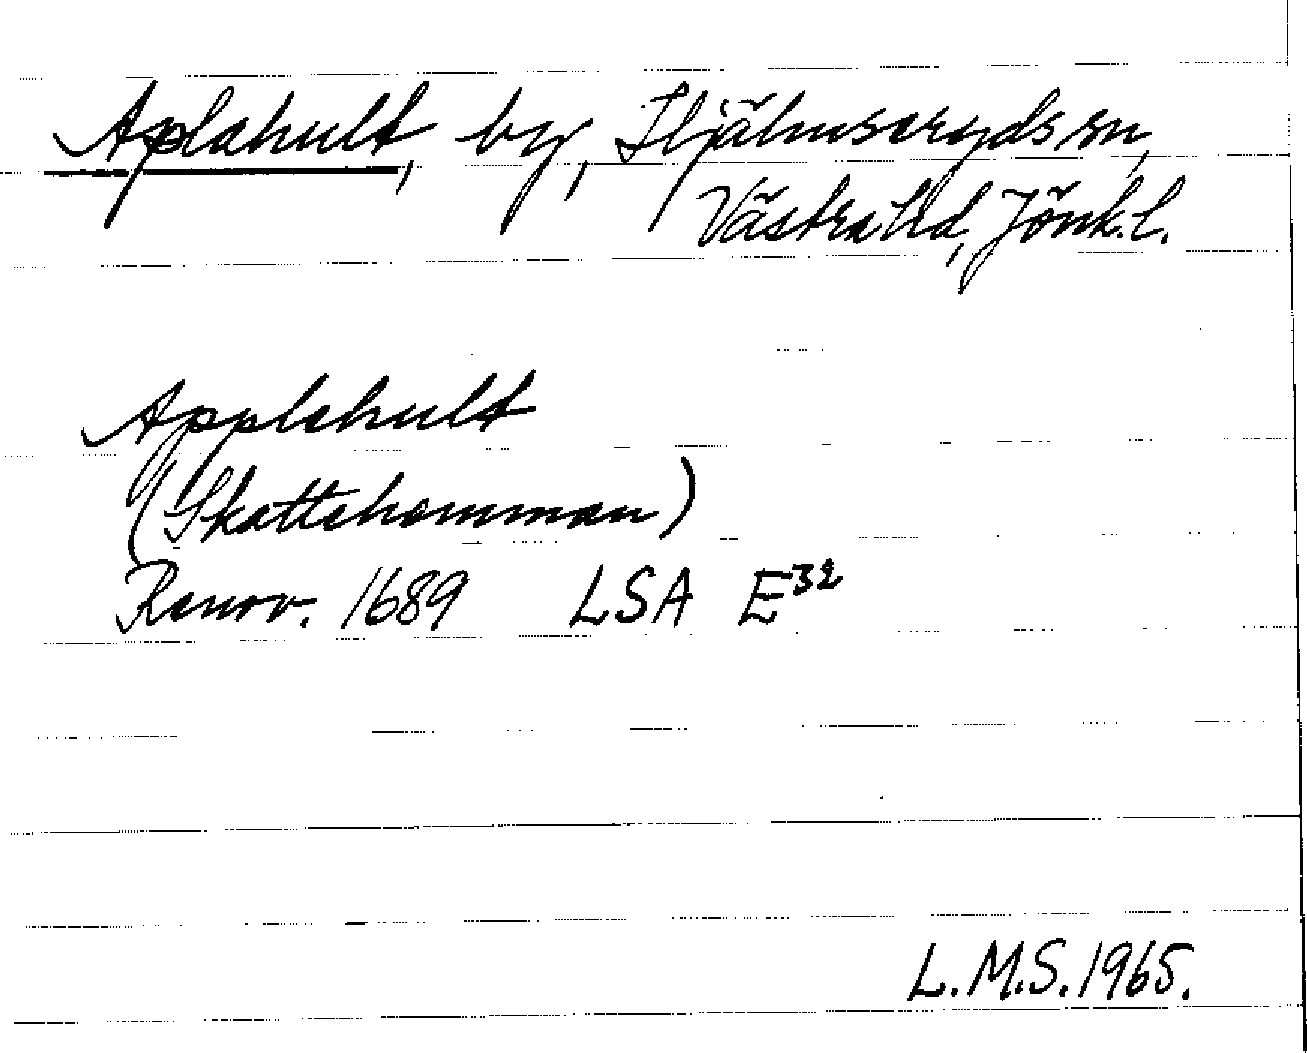 Aplahult, by, Hjälmseryds sn,
Västra hd, Jönk.l.
Applehult
(Skattehemman)
Renov. 1689 LSA E³²
L.M.S. 1965.